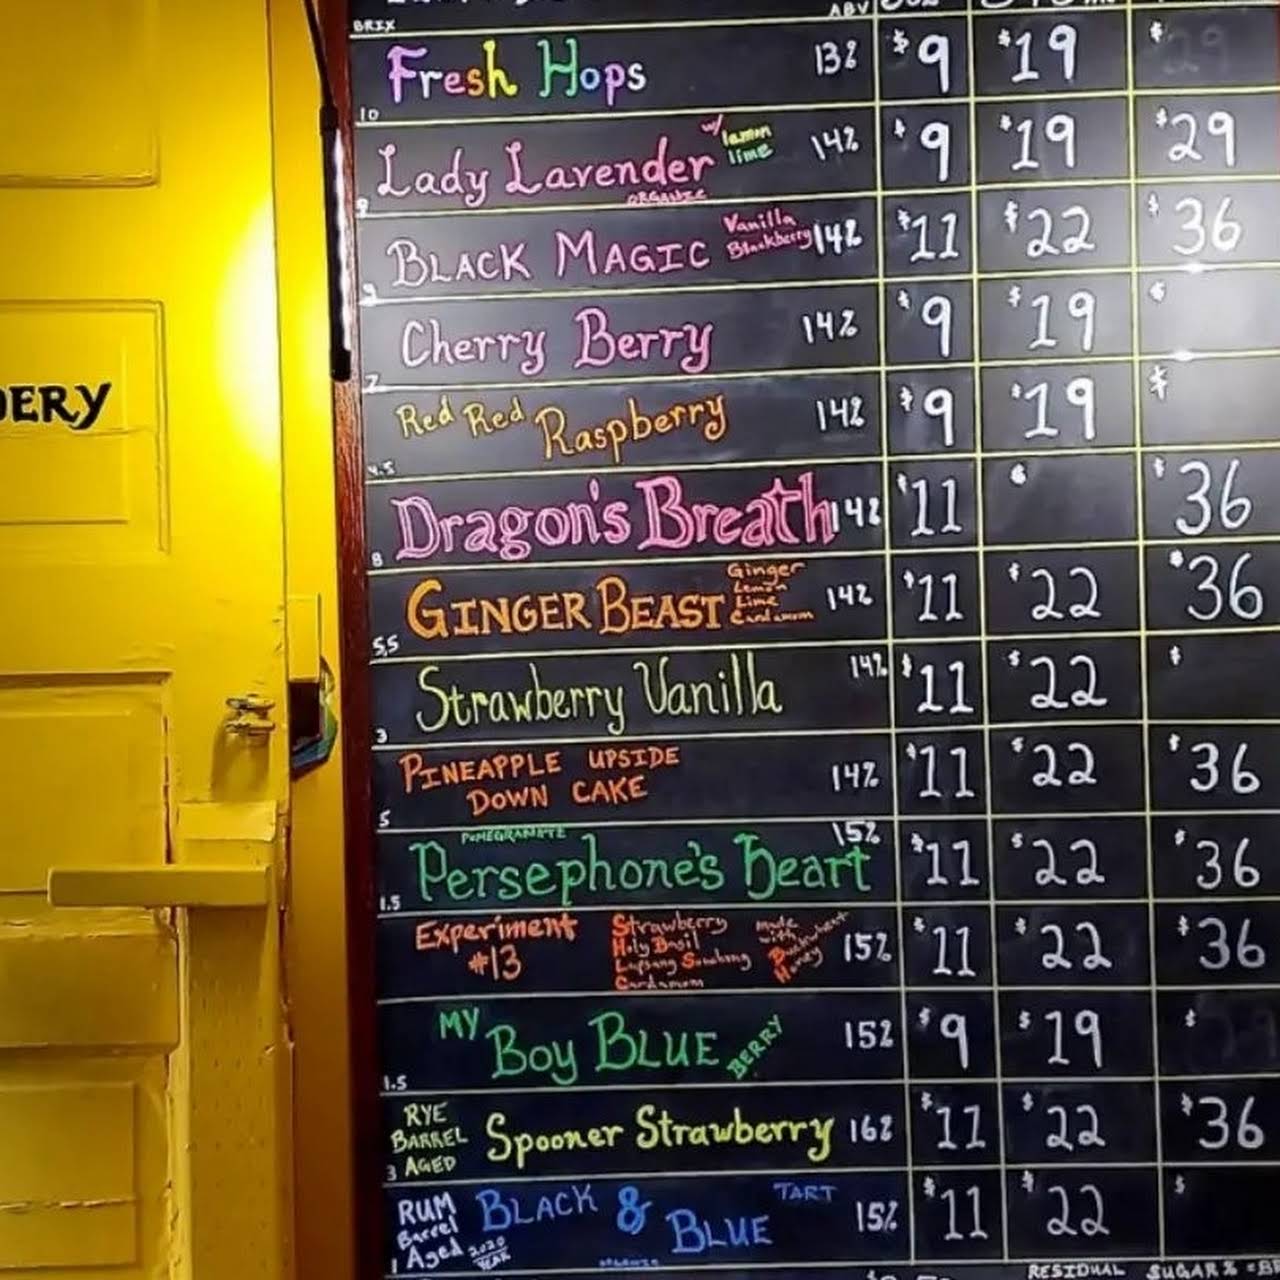 BRIX ABV
Fresh Hops 13% $9 $19 $
10
Lady Lavender w/ lemon lime 14% $9 $19 $29
ORGANIC
9
BLACK MAGIC Vanilla Blackberry 14% $11 $22 $36
9
Cherry Berry 14% $9 $19 $
7
Red Red Raspberry 14% $9 $19 $
4.5
Dragon's Breath 14% $11 $ $36
8
GINGER BEAST Ginger Lemon Lime Cardamom 14% $11 $22 $36
5.5
Strawberry Vanilla 14% $11 $22 $
3
PINEAPPLE UPSIDE
DOWN CAKE 14% $11 $22 $36
5
POMEGRANATE
Persephone's Heart 15% $11 $22 $36
1.5
Experiment #13 Strawberry Holy Basil Lapsang Souchong Cardamom made with Buckwheat Honey 15% $11 $22 $36
MY Boy BLUE BERRY 15% $9 $19 $
1.5
RYE BARREL AGED Spooner Strawberry 16% $11 $22 $36
3
RUM Barrel Aged 2020 YEAR BLACK & BLUE TART 15% $11 $22 $
1 ORGANIC
RESIDUAL SUGAR % =
DERY